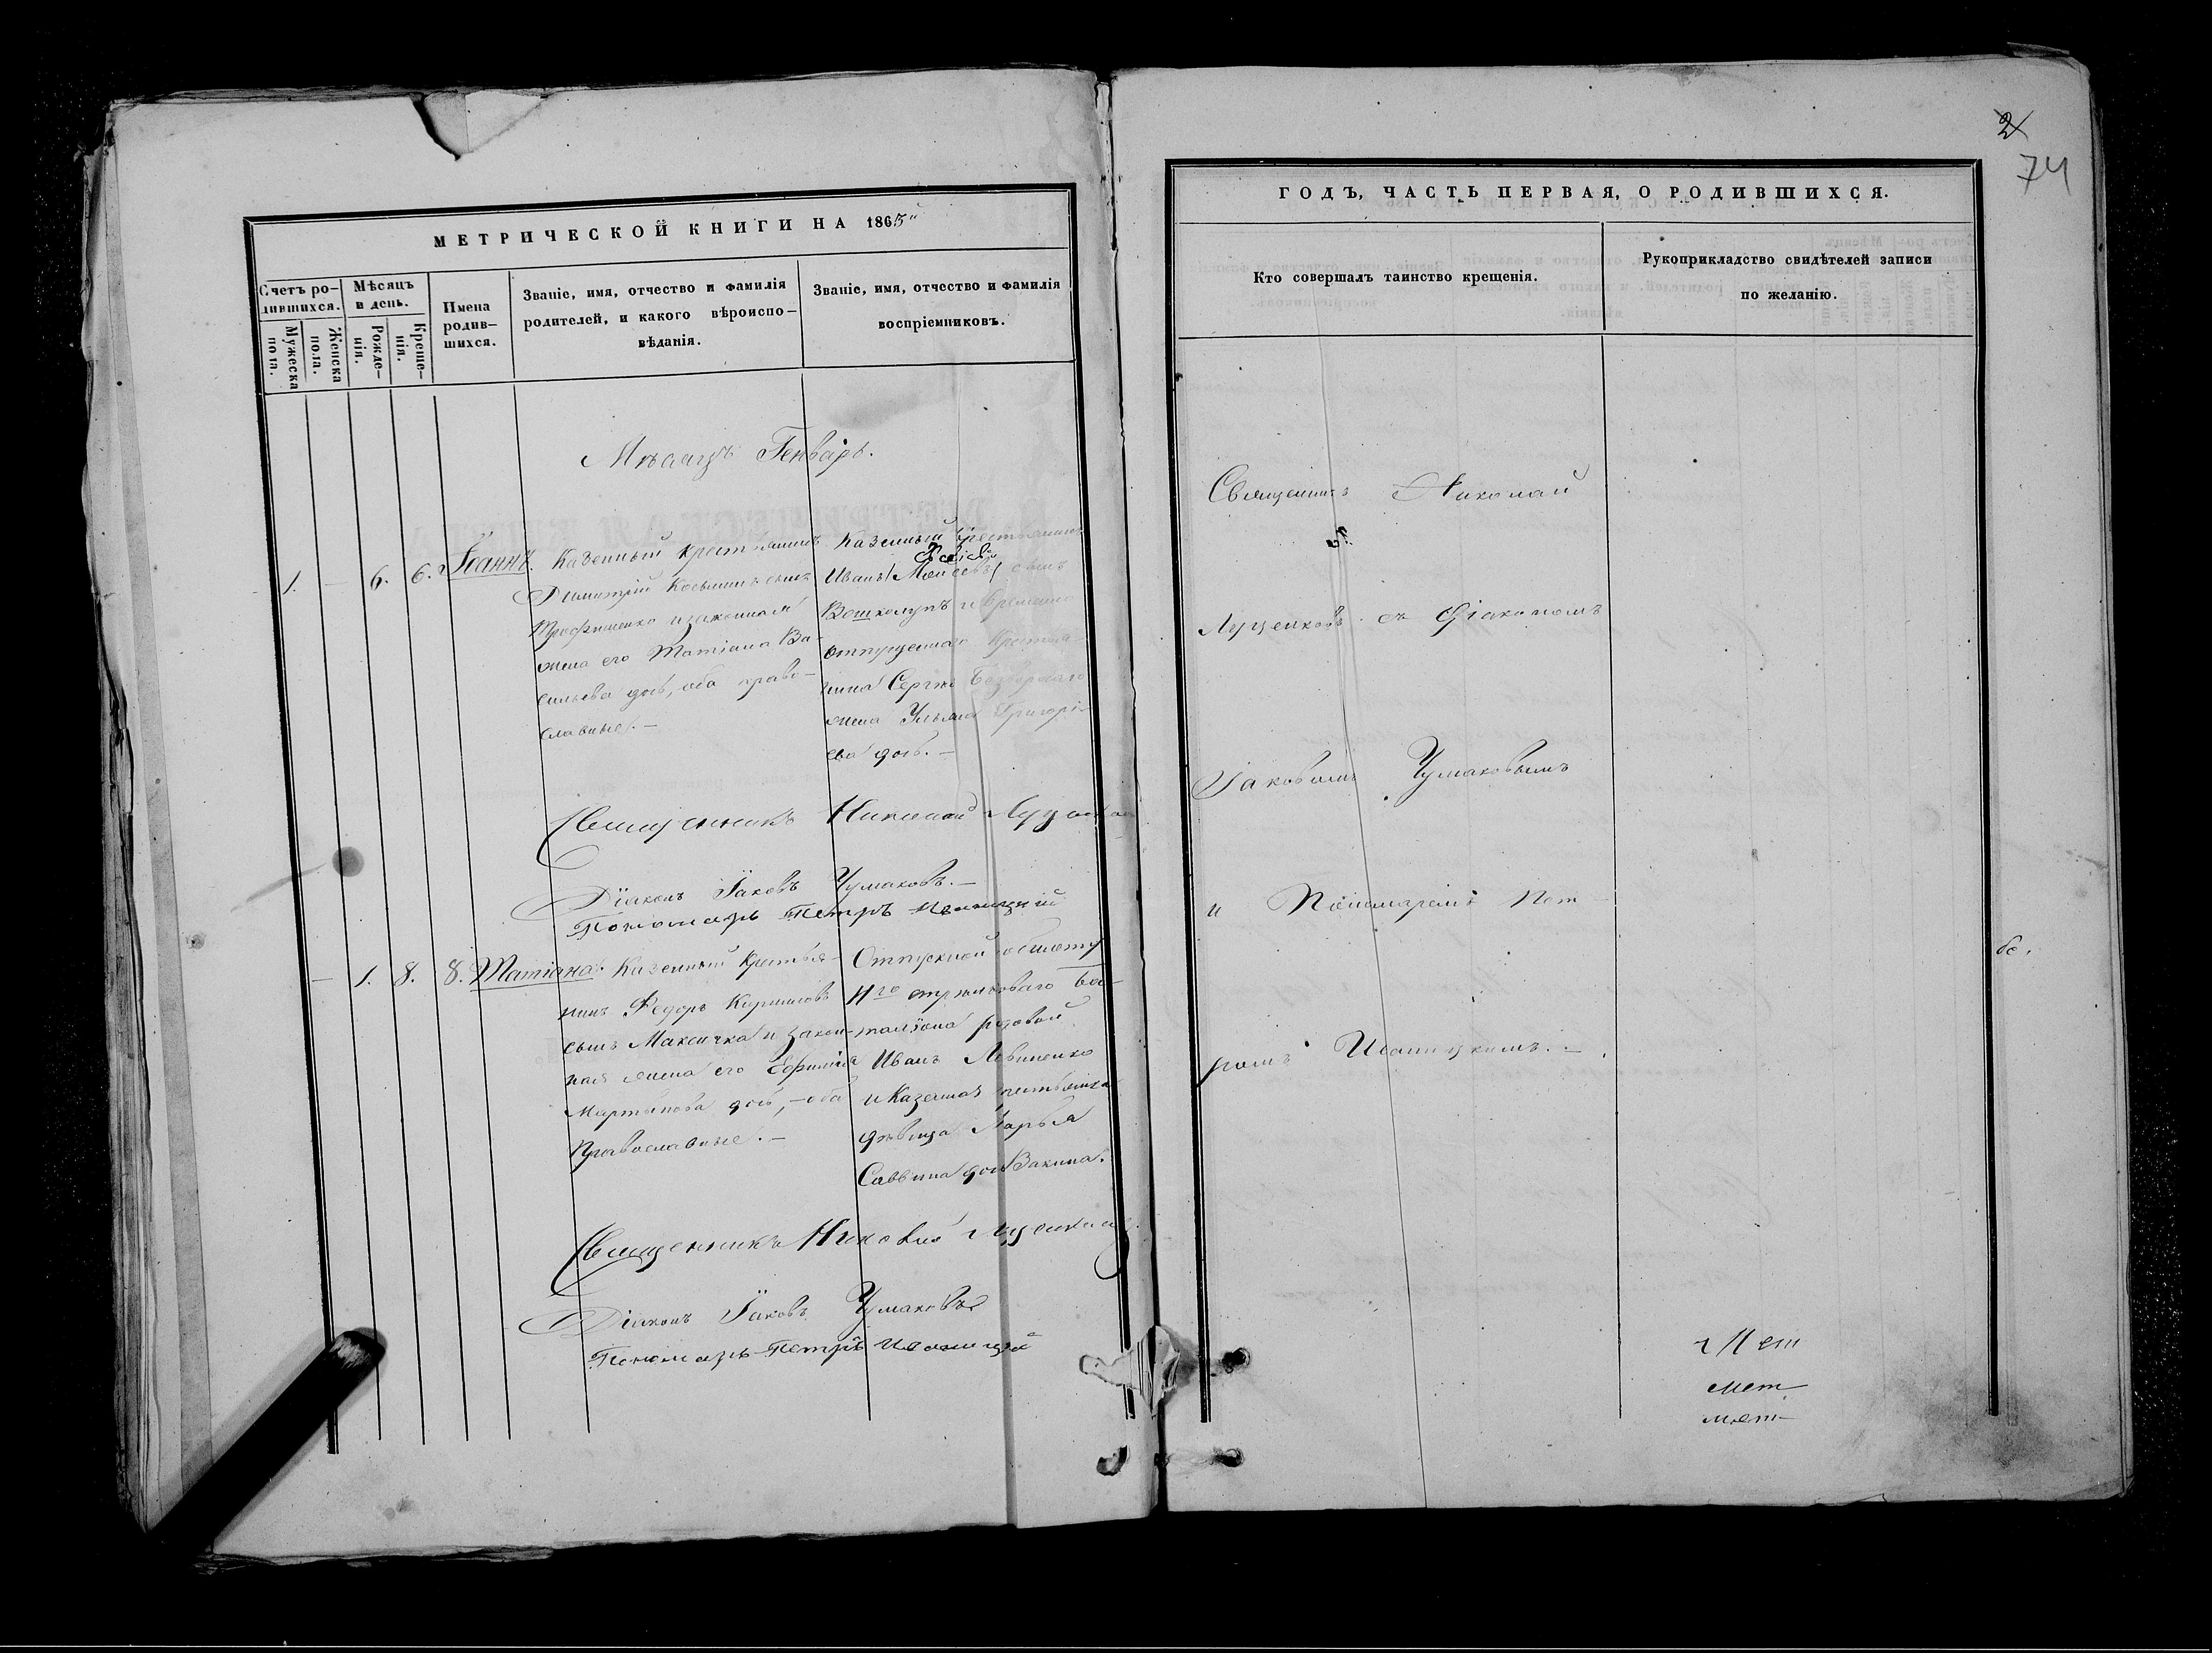 2
74
МЕТРИЧЕСКОЙ КНИГИ НА 1865й
Счетъ ро-
дившихся.
Мужеска
пола.
Женска
пола.
Мѣсяцъ
и день.
Рожде-
нія.
Креще-
нія.
Имена
родив-
шихся.
Званіе, имя, отчество и фамилія
родителей, и какого вѣроиспо-
вѣданія.
Званіе, имя, отчество и фамилія
воспріемниковъ.
Мѣсяцъ Генварь.
1. — 6. 6. Іоаннъ.
Казенный крестьянинъ
Димитрій Косьминъ сынъ
Трофименко и законная
жена его Татіана Ва-
сильева дочь, оба право-
славные. —
Казенный крестьянинъ
Иванъ Моисеевъ сынъ
и временно
отпущеннаго крестья-
нина Сергѣя
жена Ульяна Григорі-
ева дочь. —
Священникъ Николай
Діаконъ Іаковъ Чумаковъ. —
Пономарь Петръ Иваницкій
— 1. 8. 8. Татіана.
Казенный крестья-
нинъ Федоръ Кириловъ
сынъ и закон-
ная жена его Евфимія
Мартынова дочь, — оба
Православные. —
Отпускной по билету
4го стрѣлковаго ба-
таліона рядовой
Иванъ Левиненко
и казенная крестьянка
дѣвица Марья
Саввина дочь Вакина.
Священникъ Николай
Діаконъ Іаковъ Чумаковъ
Пономарь Петръ Иваницкій
ГОДЪ, ЧАСТЬ ПЕРВАЯ, О РОДИВШИХСЯ.
Кто совершалъ таинство крещенія.
Рукоприкладство свидѣтелей записи
по желанію.
Священникъ Николай
Луценковъ съ Діакономъ
Іаковомъ Чумаковымъ
и Пономаремъ Пет-
ромъ Иваницкимъ. —